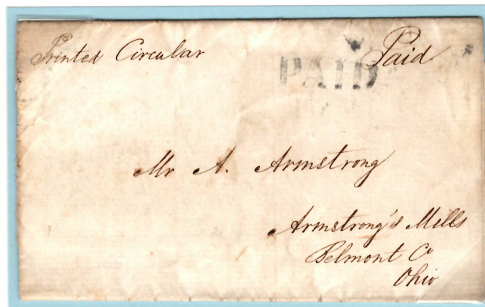 Printed Circular PAID Paid
Mr A. Armstrong
Armstrong's Mills
Belmont Co
Ohio